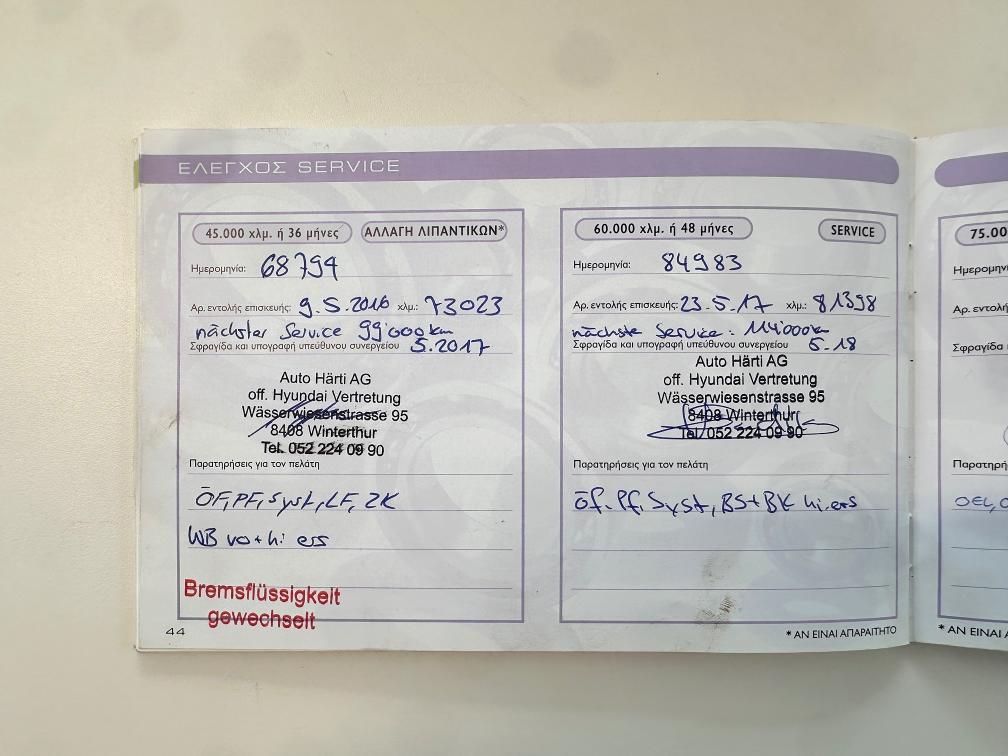 ΕΛΕΓΧΟΣ SERVICE
45.000 χλμ. ή 36 μήνες ΑΛΛΑΓΗ ΛΙΠΑΝΤΙΚΩΝ*
Ημερομηνία: 68794
Αρ. εντολής επισκευής: 9.5.2016 χλμ.: 73023
nächster Service 99'000km
Σφραγίδα και υπογραφή υπεύθυνου συνεργείου 5.2017
Auto Härti AG
off. Hyundai Vertretung
Wässerwiesenstrasse 95
8408 Winterthur
Tel. 052 224 09 90
Παρατηρήσεις για τον πελάτη
ÖF, PF, Syst, LF, ZK
WB vo + hi ers
Bremsflüssigkeit
gewechselt
44
60.000 χλμ. ή 48 μήνες SERVICE
Ημερομηνία: 84983
Αρ. εντολής επισκευής: 23.5.17 χλμ.: 81398
nächste Service: 114'000km
Σφραγίδα και υπογραφή υπεύθυνου συνεργείου 5-18
Auto Härti AG
off. Hyundai Vertretung
Wässerwiesenstrasse 95
8408 Winterthur
Tel. 052 224 09 90
Παρατηρήσεις για τον πελάτη
Öf. Pf. Syst, BS+BK hi.ers
* ΑΝ ΕΙΝΑΙ ΑΠΑΡΑΙΤΗΤΟ
75.00
Ημερομην
Αρ. εντολ
Σφραγίδα
Παρατηρή
* ΑΝ ΕΙΝΑΙ